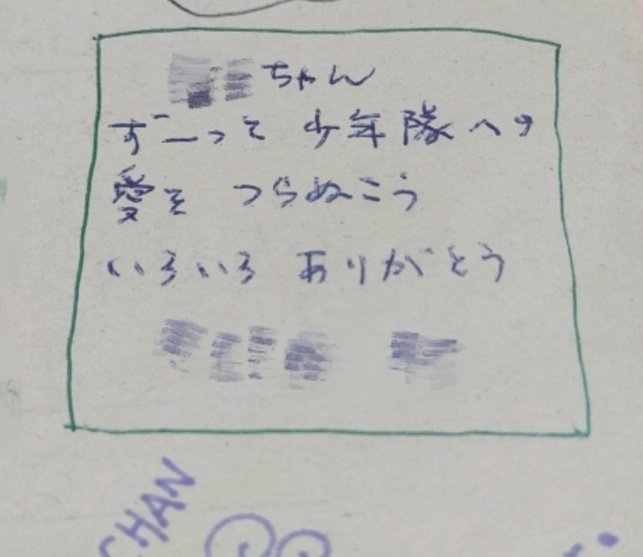 ちゃん
ずーっと 少年隊への
愛を つらぬこう
いろいろ ありがとう
CHAN